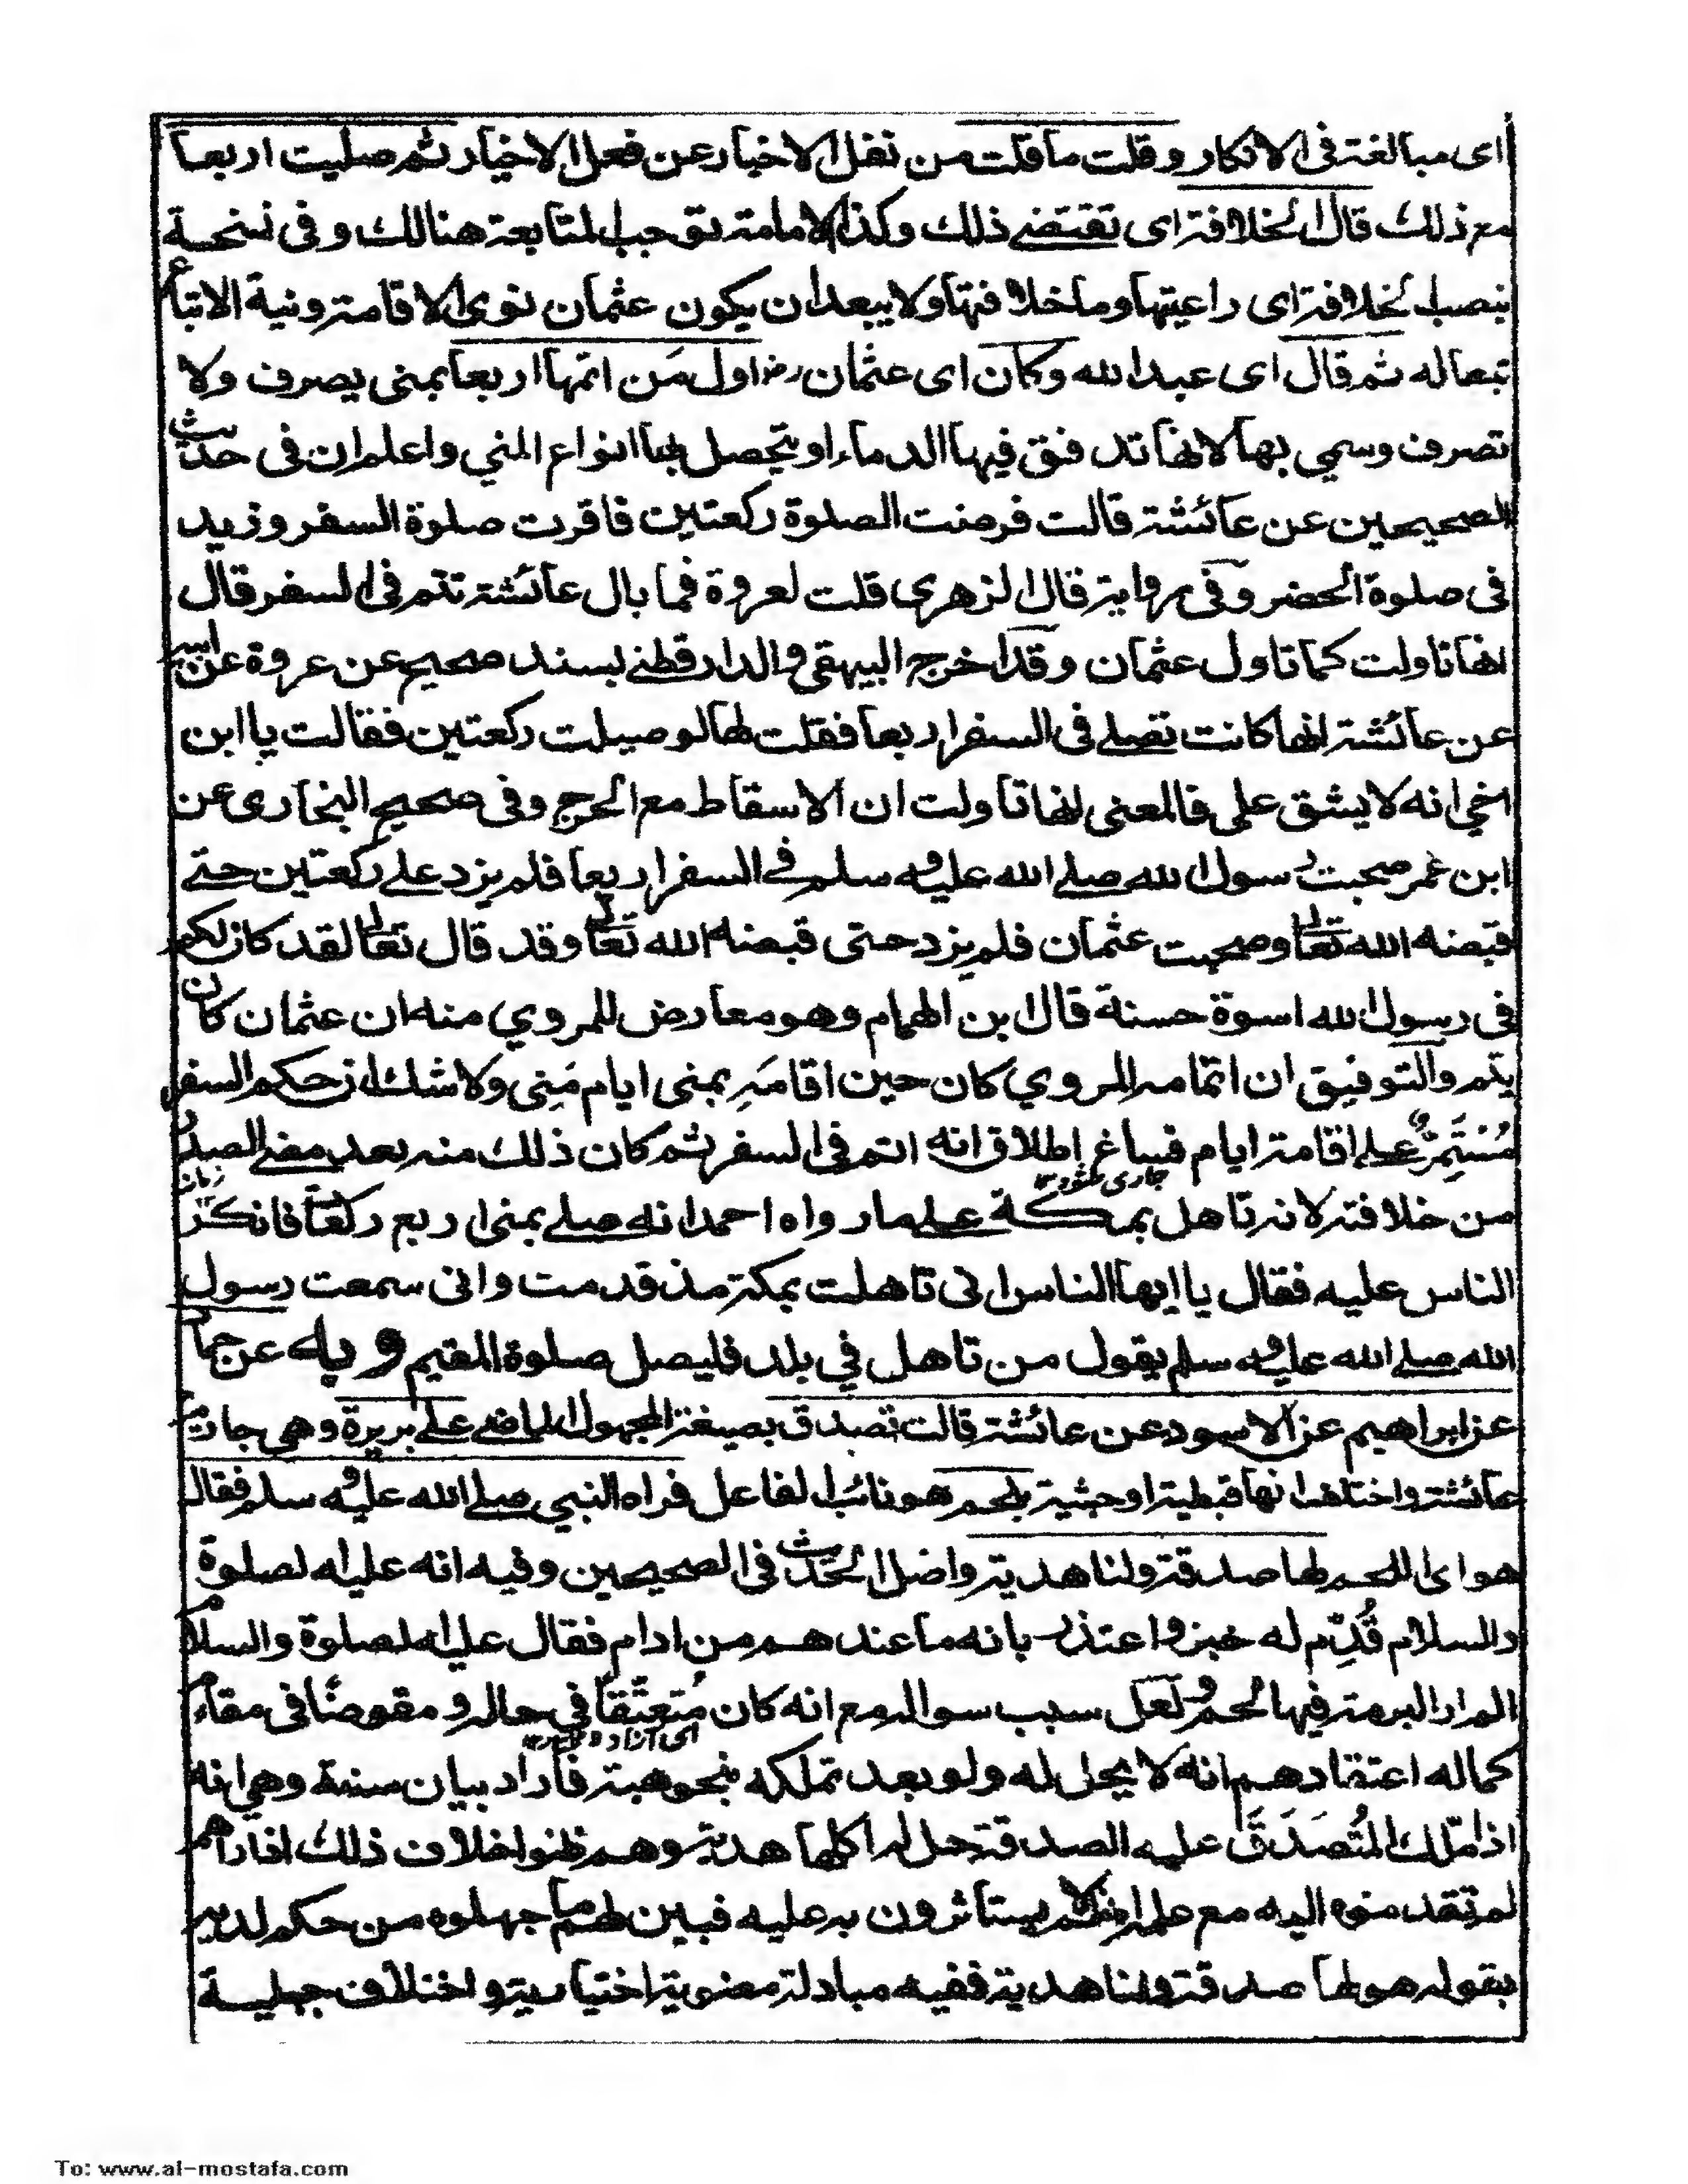 اى مبالغة فى الانكار وقلت ما قلت من نقل الاخبار عن فعل الاخيار ثم صليت اربعا
مع ذلك قال الخلافة اى تقتضے ذلك وكذا الامامة توجب المتابعة هنالك وفى نسخة
بنصب الخلافة اى راعيتها وما خلافتها ولا يبعد ان يكون عثمان نوى الاقامة ونية الاتباع
تبعا له ثم قال اى عبد الله وكان اى عثمان رض اول مَن اتمها اربعا بمنى يصرف ولا
تصرف وسمي بها لانها تدفق فيها الدماء او يحصل بها انواع المني واعلم ان فى حديث
الصحيحين عن عائشة قالت فرضت الصلوة ركعتين فاقرت صلوة السفر وزيد
فى صلوة الحضر وفى رواية قال الزهرى قلت لعروة فما بال عائشة تتم فى السفر قال
انها تاولت كما تاول عثمان وقد اخرج البيهقى والدارقطنے بسند صحيح عن عروة عن ابيه
عن عائشة انها كانت تصلے فى السفر اربعا فقلت لها لو صيلت ركعتين فقالت يا ابن
اخي انه لا يشق على فالمعنى انها تاولت ان الاسقاط مع الحرج وفى صحيح البخارى عن
ابن عمر صحبت رسول الله صلے الله عليه وسلم فے السفر اربعا فلم يزد علے ركعتين حتے
قبضه الله تعالى وصحبت عثمان فلم يزد حتى قبضه الله تعالى وقد قال تعالى لقد كان لكم
فى رسول الله اسوة حسنة قال ابن الهمام وهو معارض للمروي منه ان عثمان كان
يتم والتوفيق ان اتمامه المروي كان حين اقامَهِ بمنى ايام مَنِى ولا شك ان حكم السفر
مُسْتَمِرٌّ علے اقامة ايام فساغ اطلاق انه اتم فى السفر ثم كان ذلك منه بعد مضے الصدر
جارى زمان
من خلافته لانه تاهل بمكة علے ما رواه احمد انه صلے بمنى اربع ركعات فانكر
الناس عليه فقال يا ايها الناس انى تاهلت بمكة مذ قدمت وانى سمعت رسول
الله صلے الله عليه وسلم يقول من تاهل في بلد فليصل صلوة المقيم و به عن حماد
عن ابراهيم عن الاسود عن عائشة قالت تصدق بصيغة المجهول الماضے علے بريرة وهي جارية
عائشة واختلف انها قبطية او حبشية بلحم هو نائب الفاعل فراه النبي صلے الله عليه وسلم فقال
هو اى اللحم لها صدقة ولنا هدية واصل الحديث فى الصحيحين وفيه انه عليه الصلوة
والسلام قُدِّم له خبز واعتذر بانه ما عندهم من ادام فقال عليه الصلوة والسلام
الم ار البرمة فيها لحم ولعل سبب سواله مع انه كان مُتعتّقا في حاله و مقوضا فى مقام
اى آزاد
كماله اعتقادهم انه لا يحل له ولو بعد تملكه بنحو هبة فاراد بيان سنة وهي انه
اذا ملك المُتصَدَقَ عليه الصدقة حل له اكلها هدية وهم ظنوا خلاف ذلك اذا راهم
لم تقدموه اليه مع علمه انهم لا يستاثرون به عليه فبين لهم ما جهلوه من حكم لديه
بقوله هو لها صدقة ولنا هدية ففيه مبادلة معنوية اختيارية واختلاف جهلية
To: www.al-mostafa.com